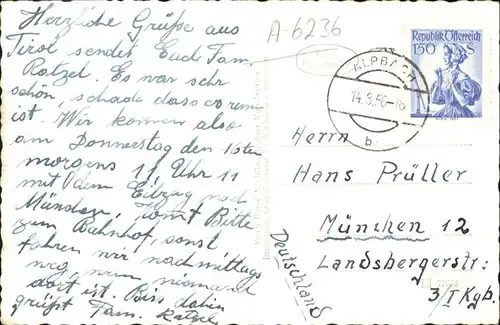 Herzliche Grüße aus
Tirol sendet Euch Fam.
Ratzel. Es war sehr
schön, schade dass es rum
ist. Wir kommen also
am Donnerstag den 16ten
morgens 11 Uhr 11
mit dem Eilzug nach
München, komt Bitte
zum Bahnhof, sonst
fahren wir nachmittags
weg, wenn niemand
dort ist. Biss dahin
grüßt Fam. Ratzel
A-6236
Republik Österreich
1.50 S
ALPBACH
14.3.56-16
b
Herrn
Hans Prüller
München 12
Landsbergerstr:
3/I Kgb.
Deutschland